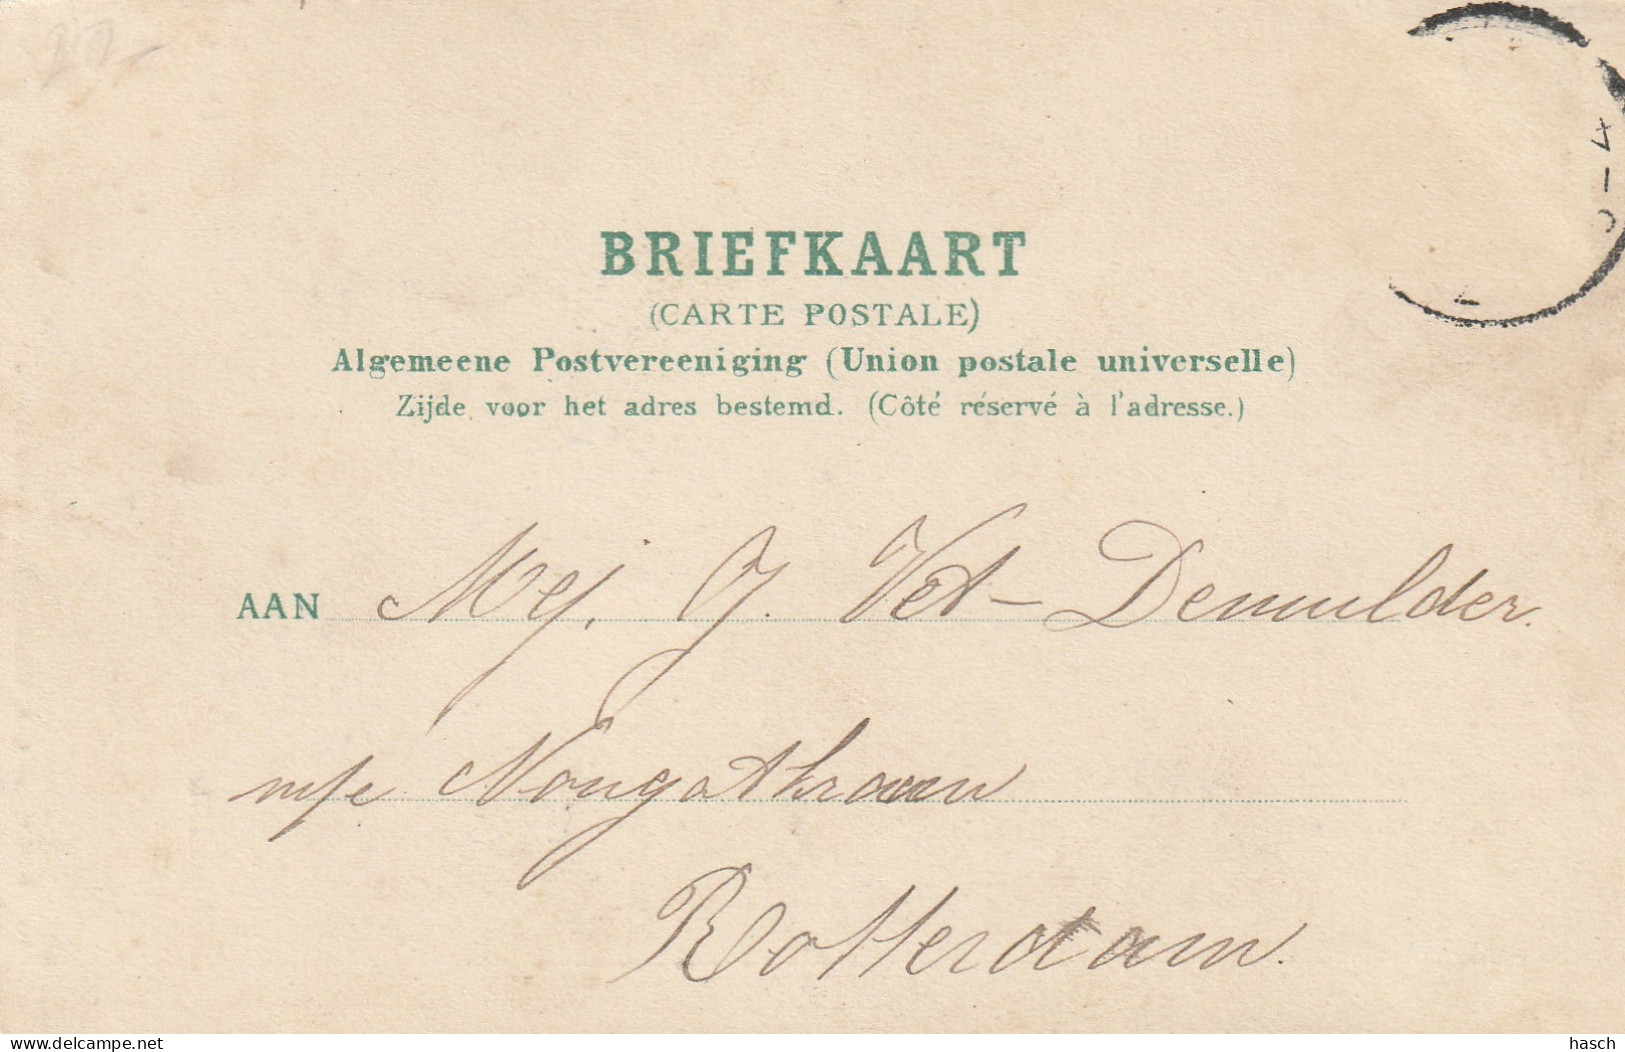 BRIEFKAART
(CARTE POSTALE)
Algemeene Postvereeniging (Union postale universelle)
Zijde voor het adres bestemd. (Côté réservé à l'adresse.)
AAN Mej. J. Vet-Demulder.
Rotterdam.
delcampe.net
hasch